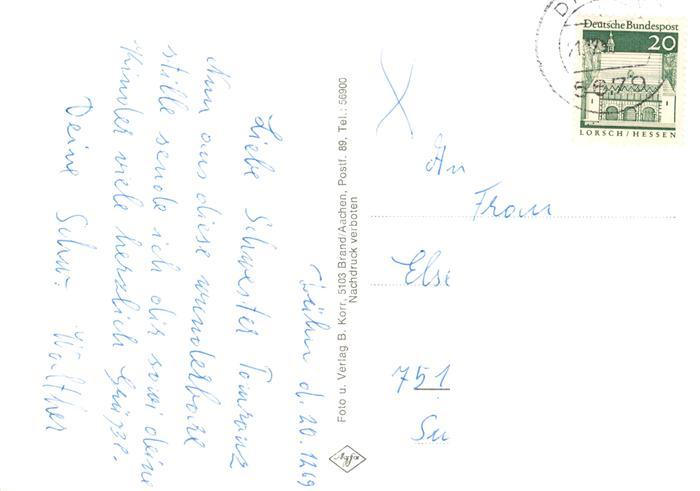 d. 20.1269
Liebe Schwester
Nun aus diese wunderbare
stille sende ich dir sowi deine
Kinder viele herzlich Grüße.
Deine Schw. Walther
Foto u. Verlag B. Korr, 5103 Brand/Aachen, Postf. 89, Tel.: 56900
Nachdruck verboten
Agfa
Deutsche Bundespost
20
LORSCH/HESSEN
5679
An
Frau
Else
751
Su